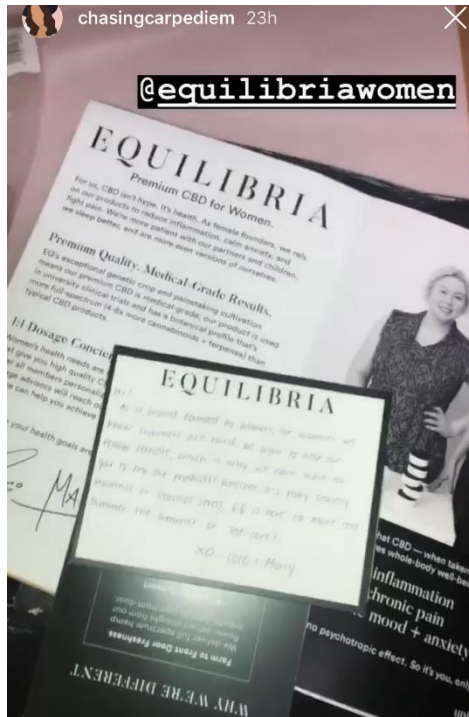 chasingcarpediem 23h
@equilibriawomen
EQUILIBRIA
Premium CBD for Women.
For us, CBD isn't hype. It's health. As female founders, we rely
on our products to reduce inflammation, calm anxiety, and
fight pain. We're more patient with our partners and children,
we sleep better, and are more even versions of ourselves.
Premium Quality. Medical-Grade Results.
EQ's exceptional genetic crop and painstaking cultivation
means our premium CBD is medical-grade; our product is used
in university clinical trials and has a botanical profile that's
more full-spectrum (4-8x more cannabinoids + terpenes) than
typical CBD products.
1:1 Dosage Concie
Women's health needs are
give you high quality C
all members personali
ge advice will reach o
we can help you achieve
your health goals are
EQUILIBRIA
Hi!
As a brand founded by women, for women we
know summers are hard. We want to
which is why we
you to try our products whether it's
EQ is here to make this
summer the
XO Coco + Marcy
hat CBD — when taken
es whole-body well-be
inflammation
chronic pain
mood + anxiety
no psychotropic effect. So it's you, only
WHY WE'RE DIFFERENT
Farm to Front Door Freshness
We deliver full spectrum hemp
flower extract straight from our